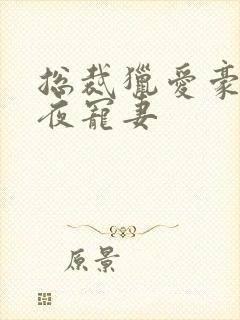 总裁獵愛豪
夜寵妻
原景